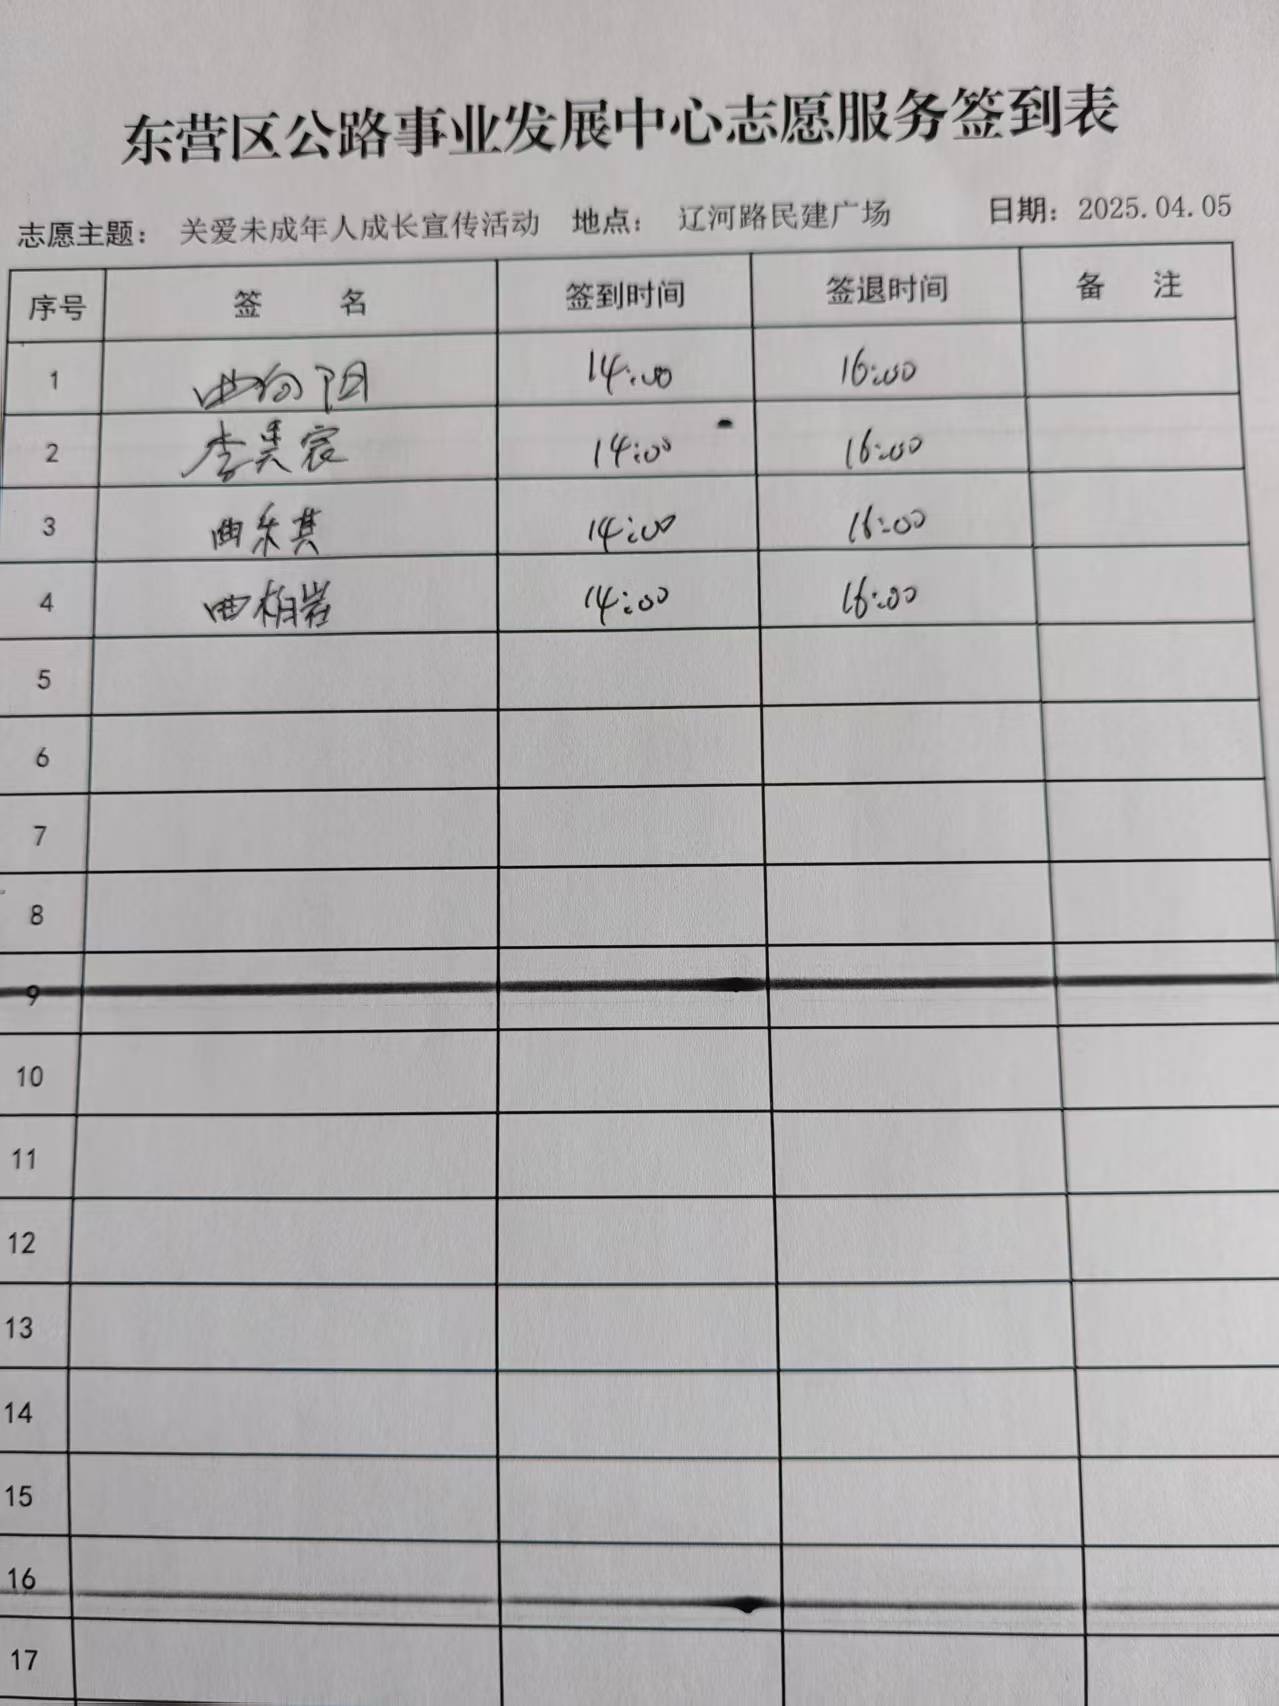 东营区公路事业发展中心志愿服务签到表
志愿主题： 关爱未成年人成长宣传活动 地点： 辽河路民建广场 日期：2025.04.05
序号 签 名 签到时间 签退时间 备 注
1 曲向阳 14:00 16:00
2 李昊宸 14:00 16:00
3 曲乐其 14:00 16:00
4 曲柏岩 14:00 16:00
5
6
7
8
9
10
11
12
13
14
15
16
17